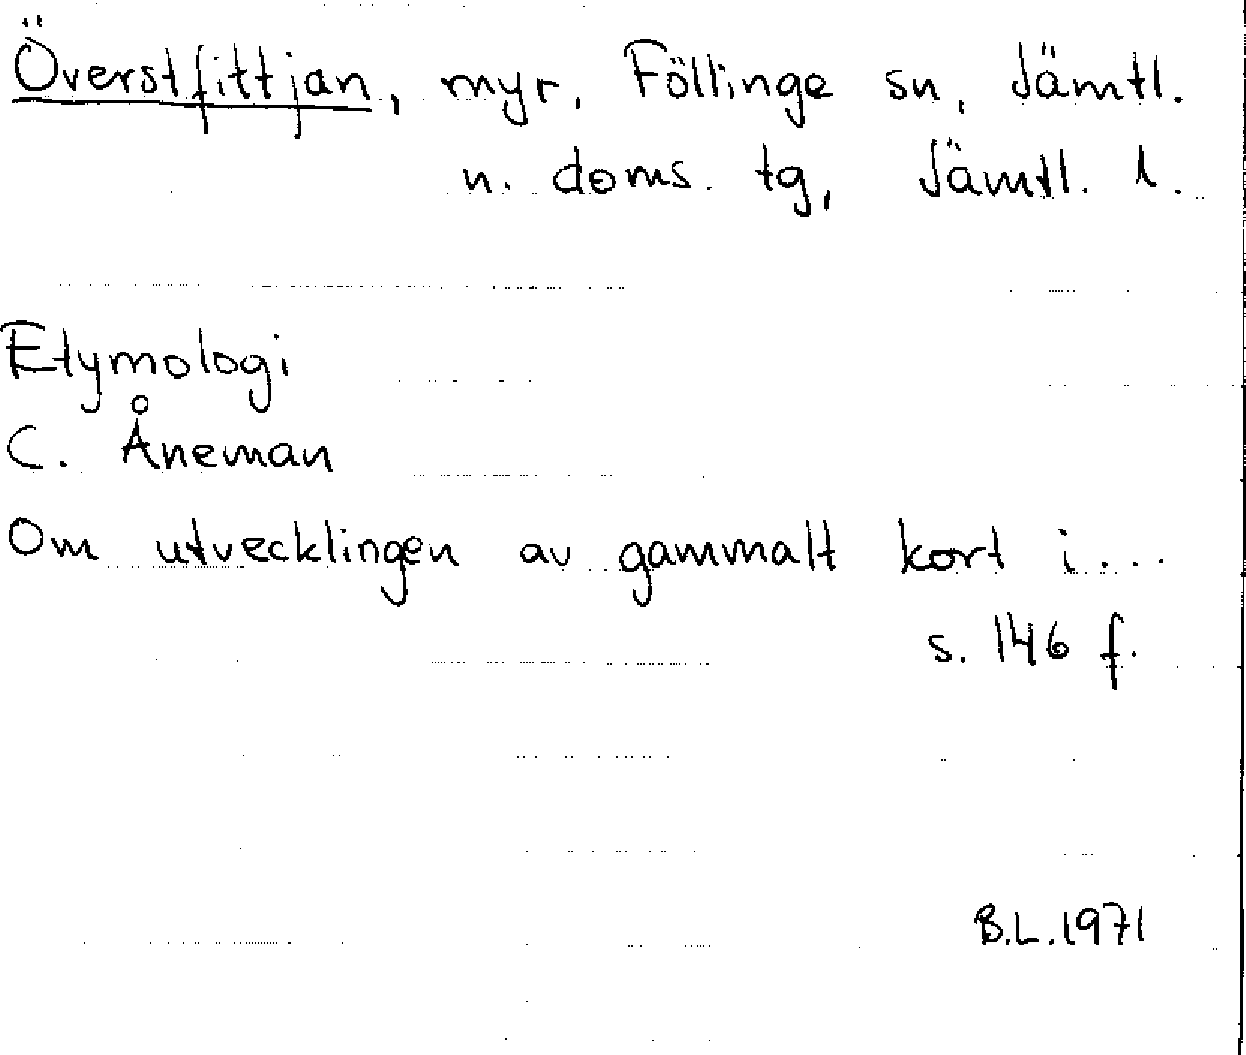 Överstfittjan, myr, Föllinge sn, Jämtl.
n. doms. tg, Jämtl. l.
Etymologi
C. Åneman
Om utvecklingen av gammalt kort i...
s. 146 f.
B.L. 1971